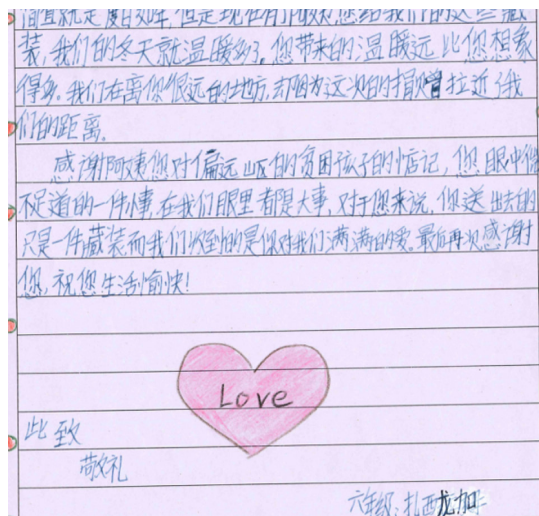 简直就是度日如年,但是现在有了阿姨您给我们的这些藏
装,我们的冬天就温暖多了。您带来的温暖远比您想象
得多,我们在离你很远的地方,却因为这次的捐赠拉近了我
们的距离。
感谢阿姨您对偏远山区的贫困孩子的惦记,您眼中微
不足道的一件小事,在我们眼里都是大事,对于您来说,你送出去的
只是一件藏装而我们收到的是你对我们满满的爱。最后再次感谢
您,祝您生活愉快!
Love
此致
敬礼
六年级:扎西龙加